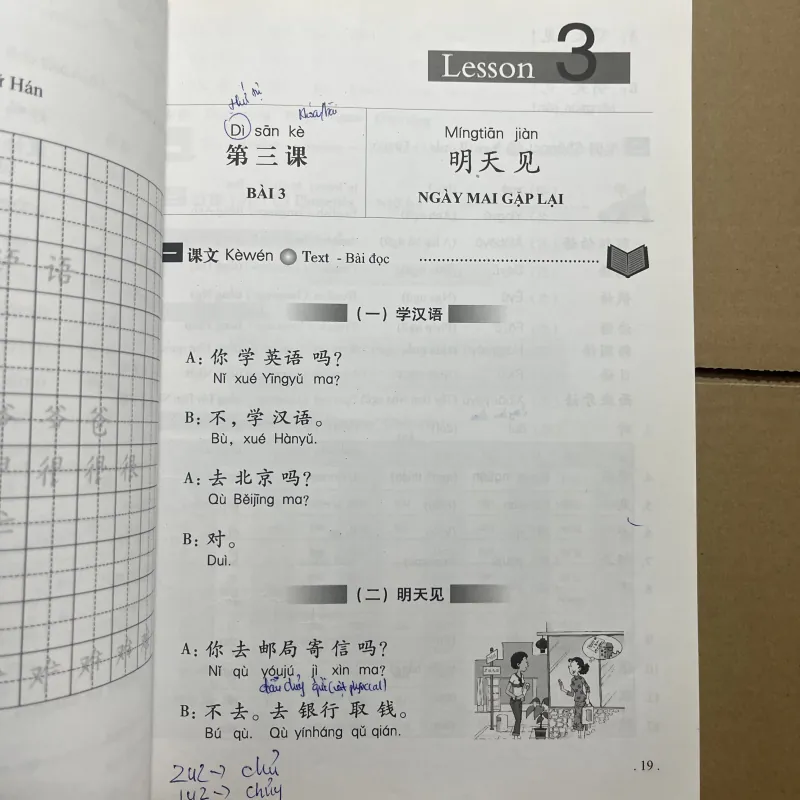 ữ Hán
语
爷 爷 爸
很 很 很
难 难 难 难
Lesson 3
thứ tự
Dì sān kè
第三课
BÀI 3
Míngtiān jiàn
明天见
NGÀY MAI GẶP LẠI
一 课文 Kèwén Text - Bài đọc
（一）学汉语
A: 你 学 英语 吗？
Nǐ xué Yīngyǔ ma?
B: 不，学 汉语。
Bù, xué Hànyǔ.
A: 去 北京 吗？
Qù Běijīng ma?
B: 对。
Duì.
（二）明天见
A: 你 去 邮局 寄 信 吗？
Nǐ qù yóujú jì xìn ma?
B: 不 去。去 银行 取 钱。
Bú qù. Qù yínháng qǔ qián.
chủ
chủy
. 19 .